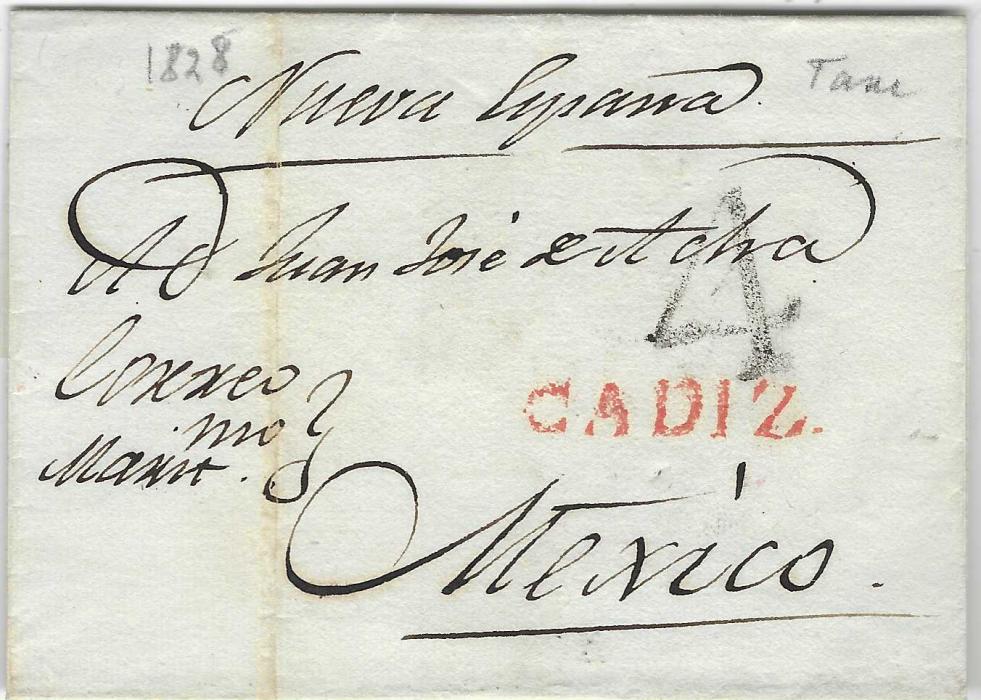 1828
Nueva España.
A D Juan José de Acha
4
Correo
mo
Marit.
CADIZ.
México.